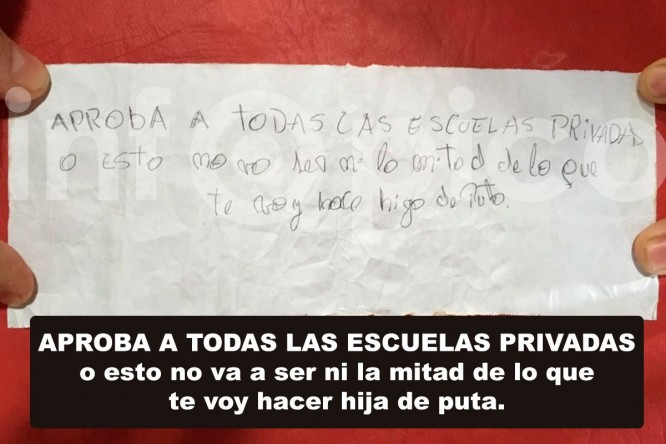 inf@pico
APROBA A TODAS LAS ESCUELAS PRIVADAS
O ESTO no va ser ni la mitad de lo que
te voy hace higa de Puta.
APROBA A TODAS LAS ESCUELAS PRIVADAS
o esto no va a ser ni la mitad de lo que
te voy hacer hija de puta.